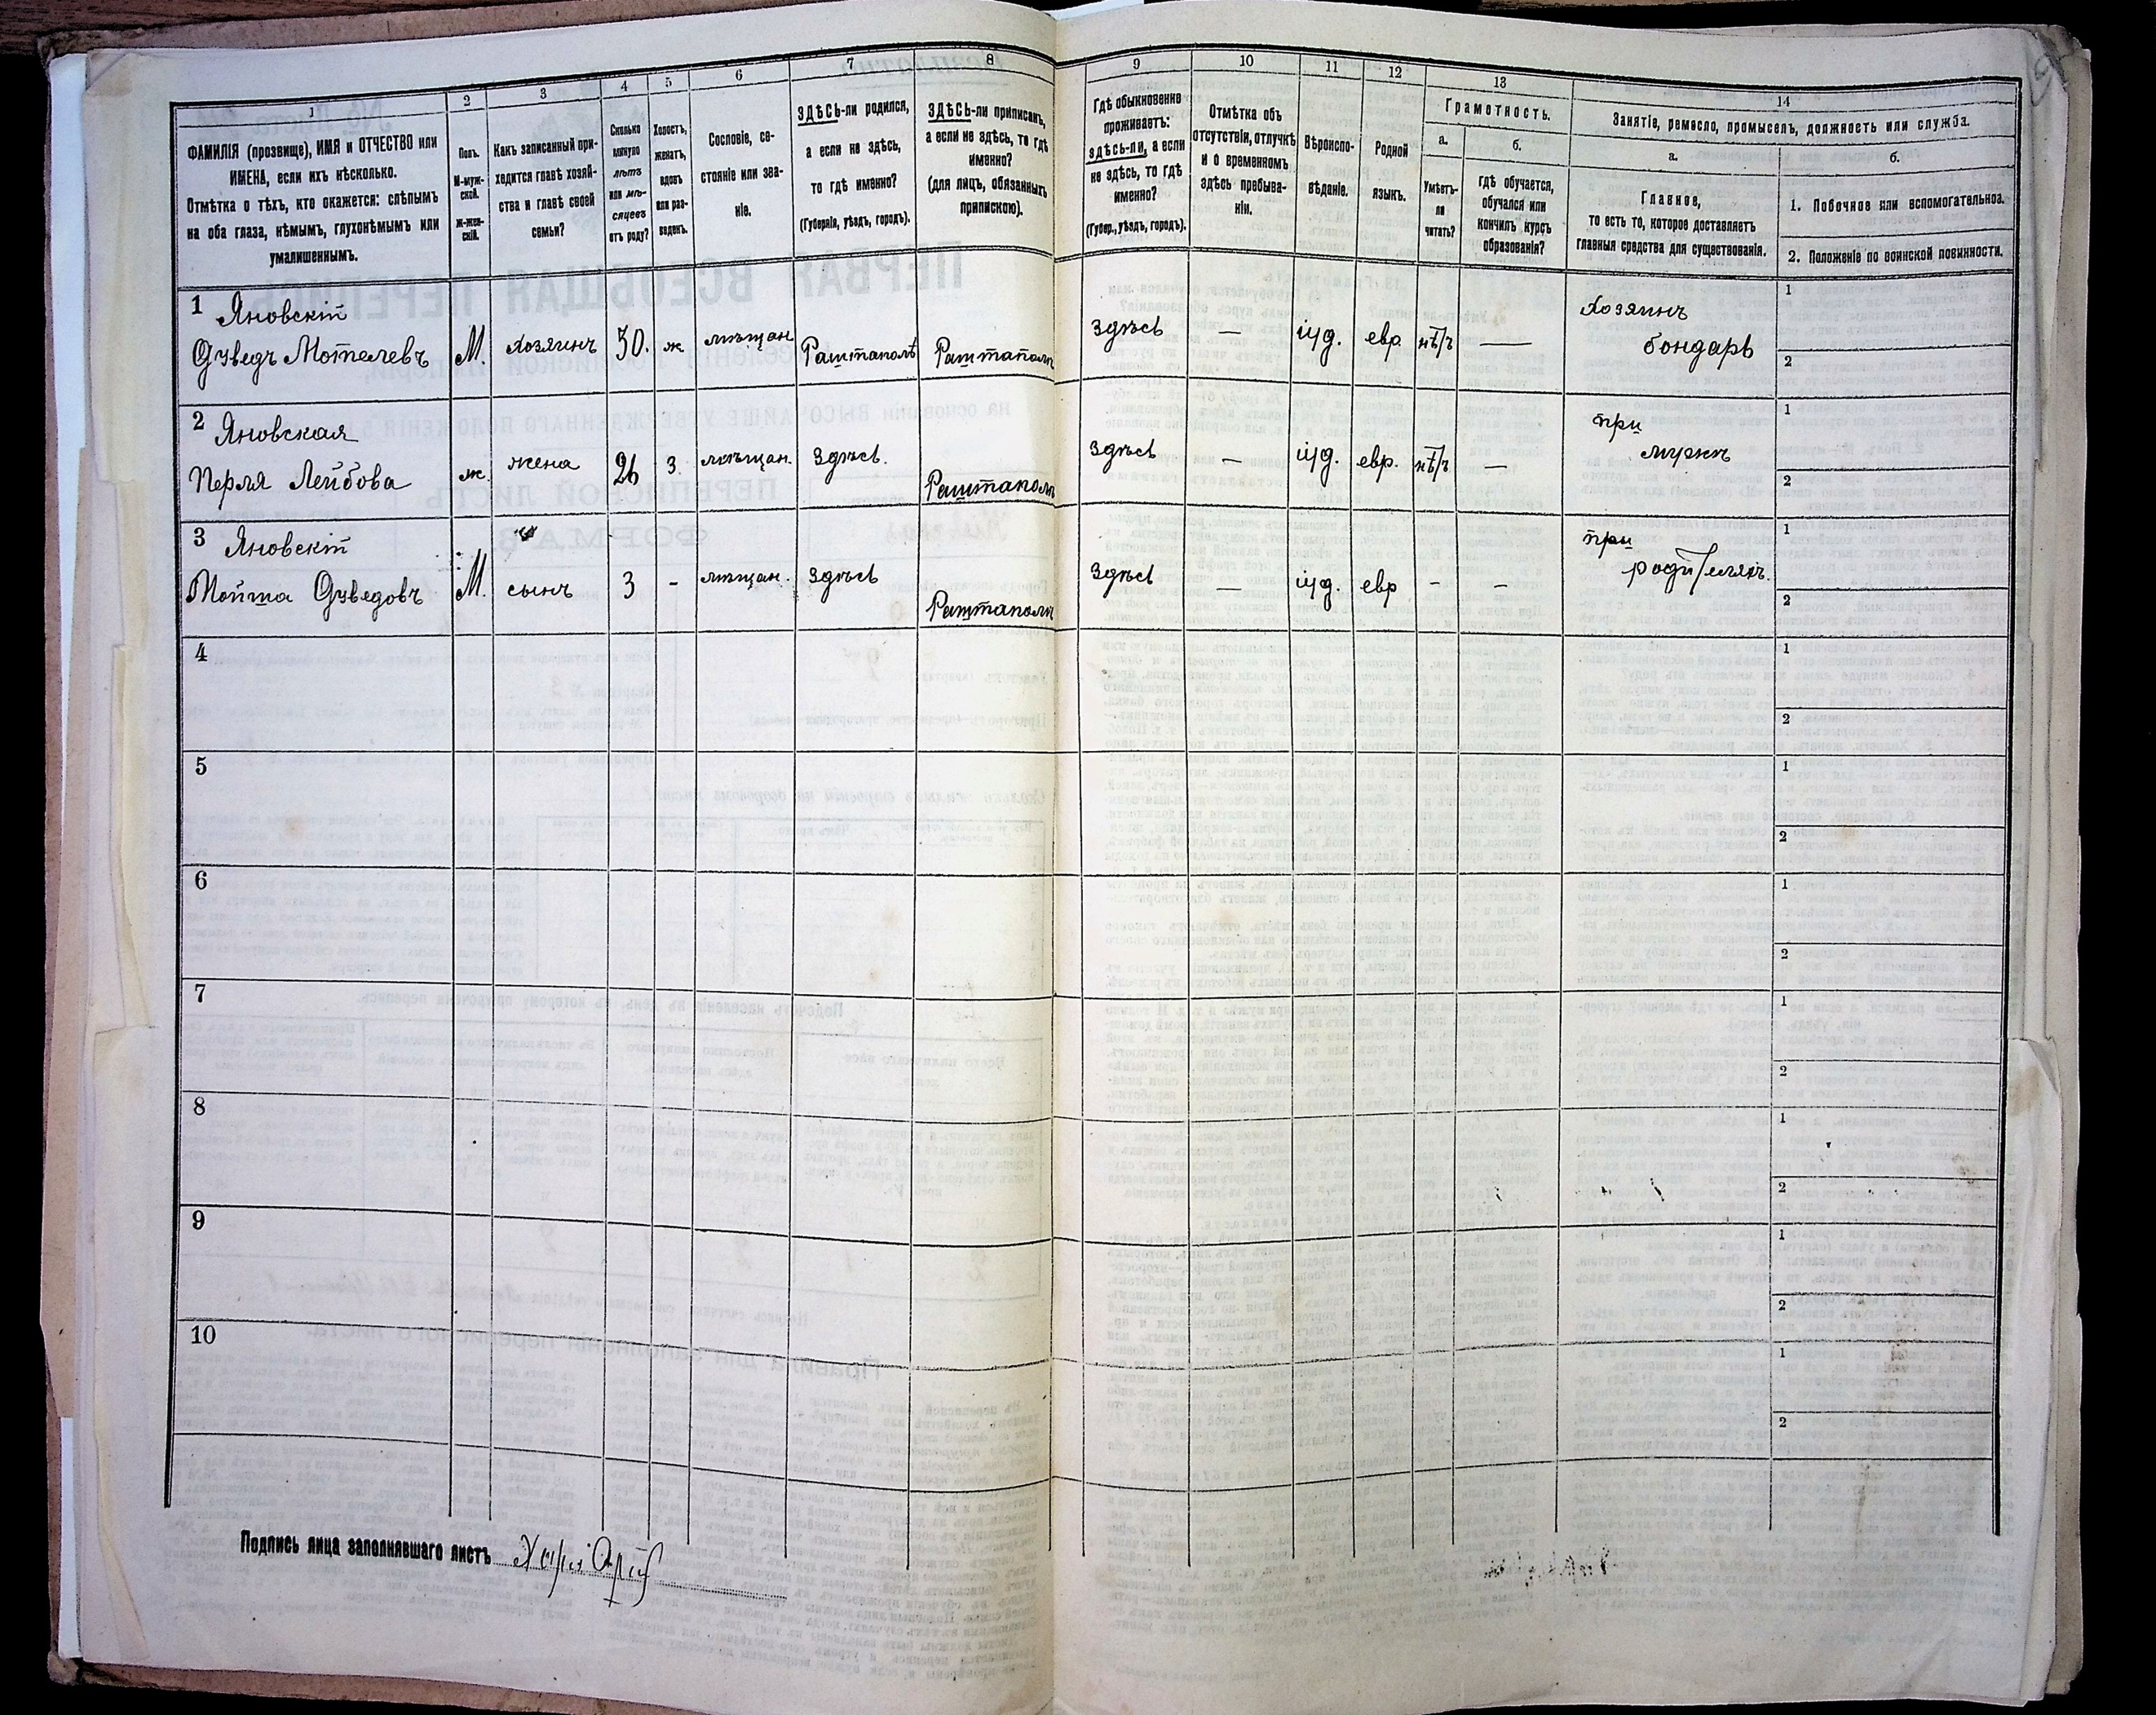 1
ФАМИЛІЯ (прозвище), ИМЯ и ОТЧЕСТВО или
ИМЕНА, если ихъ нѣсколько.
Отмѣтка о тѣхъ, кто окажется: слѣпымъ
на оба глаза, нѣмымъ, глухонѣмымъ или
умалишеннымъ.
2
Полъ.
М-муж-
ской.
Ж-жен-
скій.
3
Какъ записанный при-
ходится главѣ хозяй-
ства и главѣ своей
семьи?
4
Сколько
минуло
лѣтъ
или мѣ-
сяцевъ
отъ роду?
5
Холостъ,
женатъ,
вдовъ
или раз-
веденъ.
6
Сословіе, со-
стояніе или зва-
ніе.
7
ЗДѢСЬ-ли родился,
а если не здѣсь,
то гдѣ именно?
(Губернія, уѣздъ, городъ).
8
ЗДѢСЬ-ли приписанъ,
а если не здѣсь, то гдѣ
именно?
(для лицъ, обязанныхъ
припискою).
9
Гдѣ обыкновенно
проживаетъ:
здѣсь-ли, а если
не здѣсь, то гдѣ
именно?
(Губер., уѣздъ, городъ).
10
Отмѣтка объ
отсутствіи, отлучкѣ
и о временномъ
здѣсь пребыва-
ніи.
11
Вѣроиспо-
вѣданіе.
12
Родной
языкъ.
13
Грамотность.
а.
Умѣетъ-
ли
читать?
б.
гдѣ обучается,
обучался или
кончилъ курсъ
образованія?
14
Занятіе, ремесло, промыселъ, должность или служба.
а.
Главное,
то есть то, которое доставляетъ
главныя средства для существованія.
б.
1. Побочное или вспомогательное.
2. Положеніе по воинской повинности.
1 Яновскій
Дуведъ Мотелевъ М. хозяинъ 30. ж мѣщан. Раштаполь Раштаполь здѣсь — іуд. евр. нѣтъ — Хозяинъ
бондарь
1
2
2 Яновская
Перля Лейбова ж. жена 26 з. мѣщан. Здѣсь. Раштаполь здѣсь — іуд. евр. нѣтъ — при
мужѣ
1
2
3 Яновскій
Мойша Дуведовъ М. сынъ 3 - мѣщан. здѣсь Раштаполь Здѣсь — іуд. евр - - при
родителяхъ.
1
2
4
1
2
5
1
2
6
1
2
7
1
2
8
1
2
9
1
2
10
1
2
Подпись лица заполнявшаго листъ